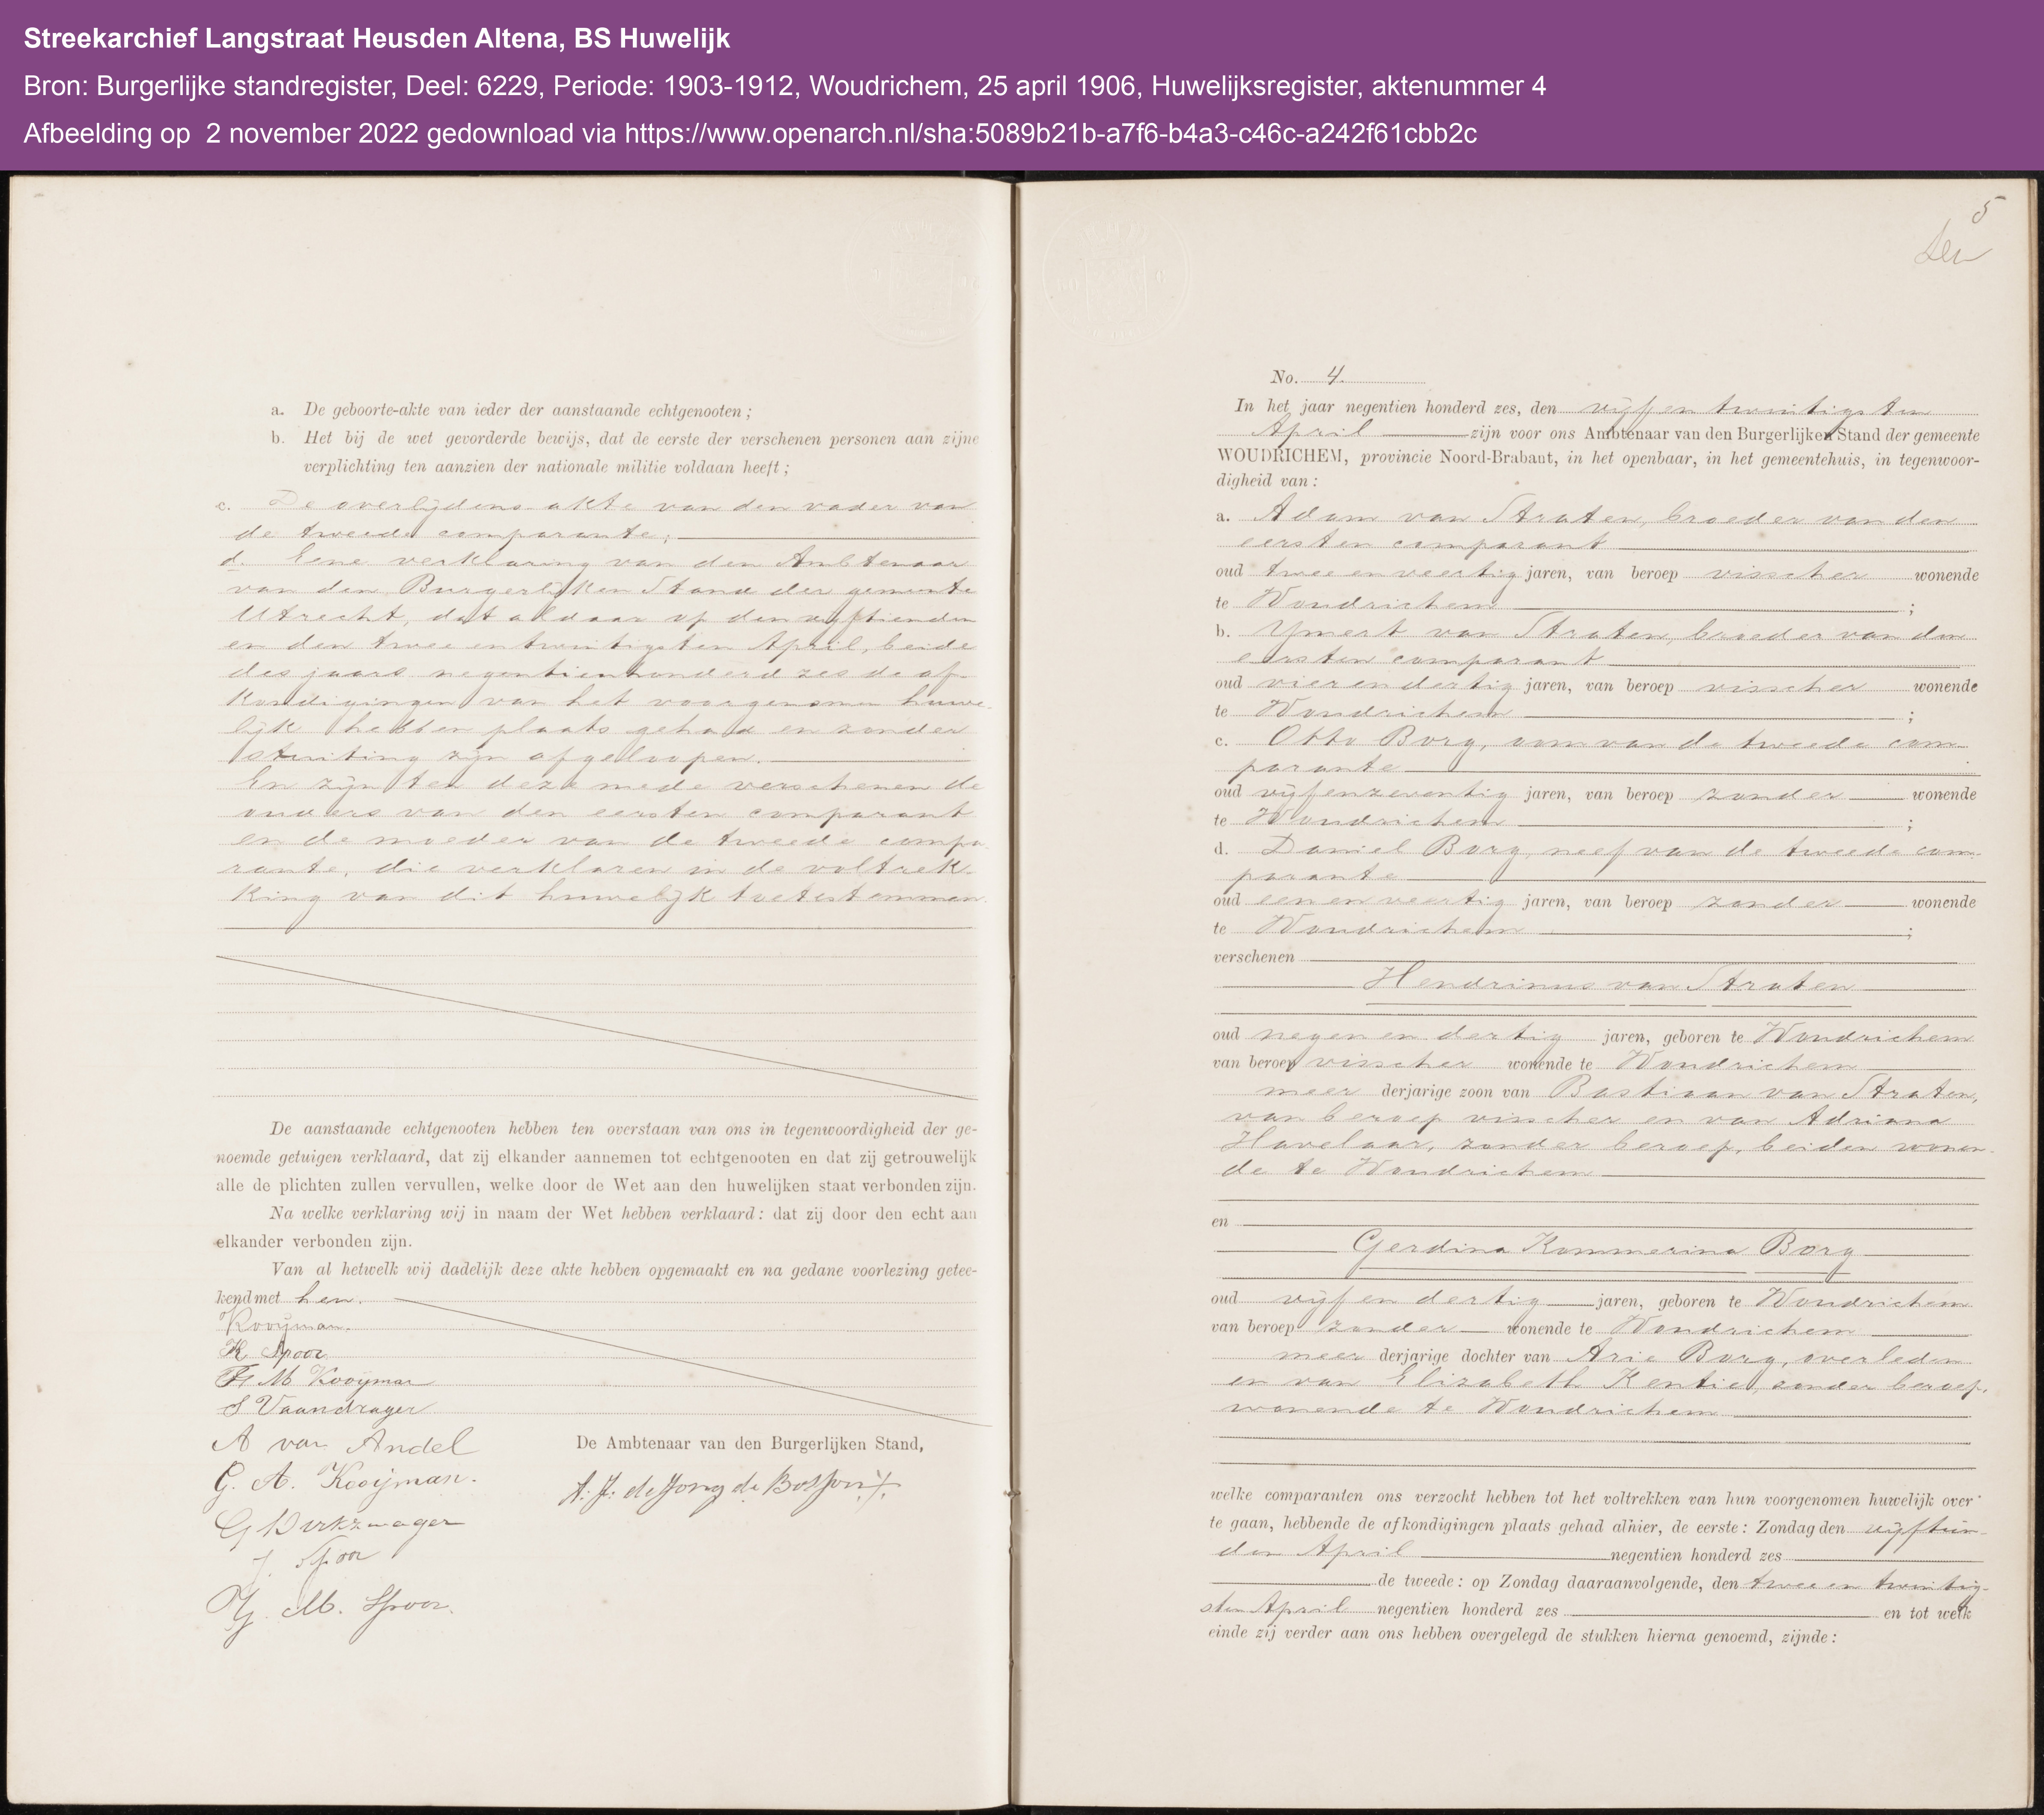 Streekarchief Langstraat Heusden Altena, BS Huwelijk
Bron: Burgerlijke standregister, Deel: 6229, Periode: 1903-1912, Woudrichem, 25 april 1906, Huwelijksregister, aktenummer 4
Afbeelding op 2 november 2022 gedownload via https://www.openarch.nl/sha:5089b21b-a7f6-b4a3-c46c-a242f61cbb2c
a. De geboorte-akte van ieder der aanstaande echtgenooten;
b. Het bij de wet gevorderde bewijs, dat de eerste der verschenen personen aan zijne
verplichting ten aanzien der nationale militie voldaan heeft;
c. De overlijdens-akte van den vader van
de tweede comparante;
d. Eene verklaring van den Ambtenaar
van den Burgerlijken Stand der gemeente
Utrecht, dat aldaar op den vijftienden
en den twee en twintigsten April, beide
des jaars negentienhonderd zes de af-
kondigingen van het voorgenomen huwe-
lijk hebben plaats gehad en zonder
stuiting zijn afgeloopen.
En zijn ten deze mede verschenen de
ouders van den eersten comparant
en de moeder van de tweede compa-
rante, die verklaren in de voltrek-
king van dit huwelijk toetestemmen
De aanstaande echtgenooten hebben ten overstaan van ons in tegenwoordigheid der ge-
noemde getuigen verklaard, dat zij elkander aannemen tot echtgenooten en dat zij getrouwelijk
alle de plichten zullen vervullen, welke door de Wet aan den huwelijken staat verbonden zijn.
Na welke verklaring wij in naam der Wet hebben verklaard: dat zij door den echt aan
elkander verbonden zijn.
Van al hetwelk wij dadelijk deze akte hebben opgemaakt en na gedane voorlezing getee-
kend met hen.
Kooijman.
K Spoor
F. M Kooijman
S Vaandrager
A van Andel
G. A. Kooijman.
G Dirkzwager
J. Spoor
M. Spoor.
De Ambtenaar van den Burgerlijken Stand,
de Jong de
5
No. 4.
In het jaar negentien honderd zes, den vijf en twintigsten
April zijn voor ons Ambtenaar van den Burgerlijken Stand der gemeente
WOUDRICHEM, provincie Noord-Brabant, in het openbaar, in het gemeentehuis, in tegenwoor-
digheid van:
a. Adam van Straten, broeder van den
eersten comparant
oud twee en veertig jaren, van beroep visscher wonende
te Woudrichem ;
b. Ymert van Straten, broeder van den
eersten comparant
oud vier en dertig jaren, van beroep visscher wonende
te Woudrichem ;
c. Otto Borg, oom van de tweede com-
parante
oud vijf en zeventig jaren, van beroep zonder wonende
te Woudrichem ;
d. Daniel Borg, neef van de tweede com-
parante
oud een en veertig jaren, van beroep zonder wonende
te Woudrichem ;
verschenen
Hendrinus van Straten
oud negen en dertig jaren, geboren te Woudrichem
van beroep visscher wonende te Woudrichem
meer derjarige zoon van Bastiaan van Straten,
van beroep visscher en van Adriana
Havelaar, zonder beroep, beiden wonen-
de te Woudrichem
en
Gerdina Kommerina Borg
oud vijf en dertig jaren, geboren te Woudrichem
van beroep zonder wonende te Woudrichem
meer derjarige dochter van Arie Borg, overleden
en van Elizabeth Kentie, zonder beroep,
wonende te Woudrichem
welke comparanten ons verzocht hebben tot het voltrekken van hun voorgenomen huwelijk over
te gaan, hebbende de afkondigingen plaats gehad alhier, de eerste: Zondag den vijftien-
den April negentien honderd zes
de tweede: op Zondag daaraanvolgende, den twee en twintig-
sten April negentien honderd zes en tot welk
einde zij verder aan ons hebben overgelegd de stukken hierna genoemd, zijnde: